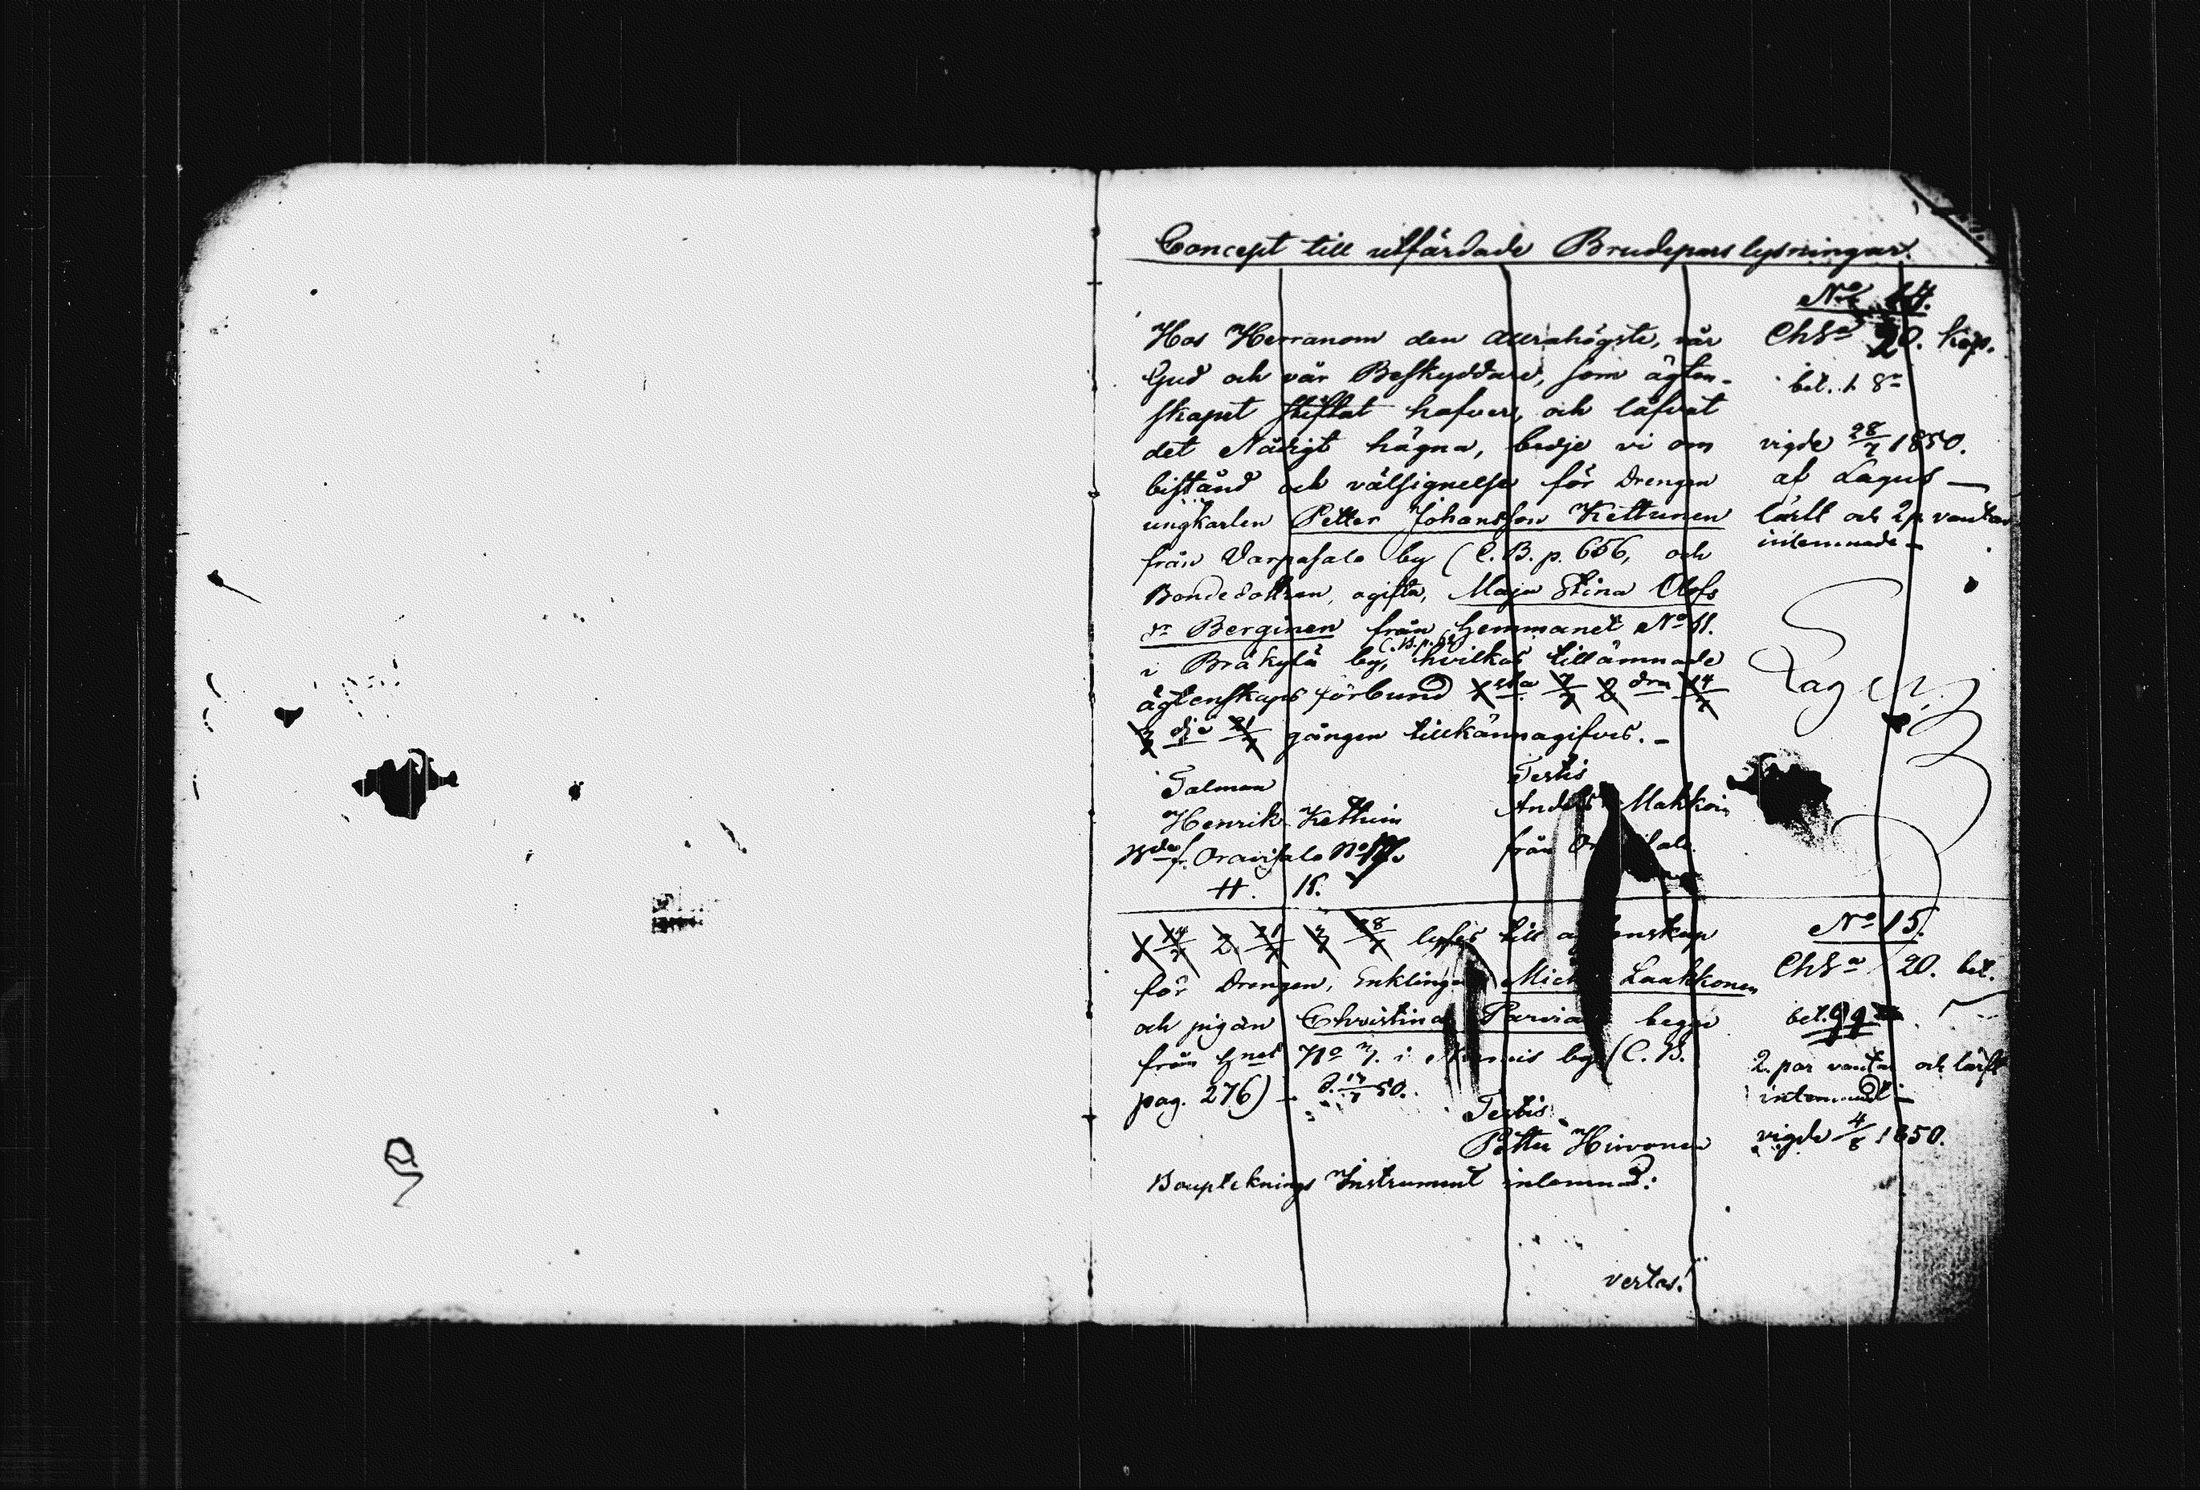 Concept till utfärdade Brudepars lysningar.
No 14.
Hos Herranom den allrahögste, vår
Gud och vår Beskyddare, som ägten-
skapet stiftat hafver, och låfvat
det Nådigt hägna, bedje vi om
bistånd och välsignelse för Drengen
ungkarlen Petter Johansson Kettunen
från Varpasalo by (C.B. p. 656, och
Bondedottren, ogifta, Maja Stina Olofs
dr Berginen från hemmanet No 11.
i Bräkylä by, hvilkas tillämnade
ägtenskaps förbund 1 sta 7/7 2 dra 14/7
3 dje 21/7 gången tillkännagifves. -
Talman
Henrik
fr. Oravisalo No
H. 15.
Testis
Anders Makkoin
från
20. kop.
bet.
vigde 28/7 1850.
af Lagus -
lärft och 2 p vantar
inlemnade -
1 14/7 2 21/7 3 28/7 lyses till ägtenskap
för Drengen, Enklingen Mich Laakkonen
och pigan Christina Parvia begge
från hmet No 7. i by (C.B.
pag. 276) - d. 13/7 50.
Testis
Petter Hirvonen
Boupteknings Instrument inlemnad:
No 15.
20. bet.
bet.
2. par vantar och lärft
inlemnadt -
vigde 4/8 1850.
vertas!